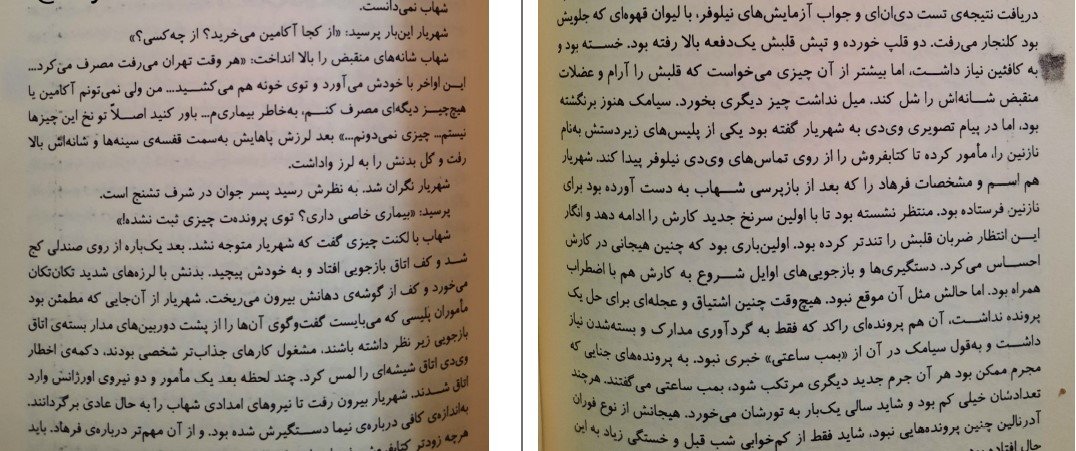 دریافت نتیجه‌ی تست دی‌ان‌ای و جواب آزمایش‌های نیلوفر، با لیوان قهوه‌ای که جلویش
بود کلنجار می‌رفت. دو قلپ خورده و تپش قلبش یک‌دفعه بالا رفته بود. خسته بود و
به کافئین نیاز داشت، اما بیشتر از آن چیزی می‌خواست که قلبش را آرام و عضلات
منقبض شانه‌اش را شل کند. میل نداشت چیز دیگری بخورد. سیامک هنوز برنگشته
بود، اما در پیام تصویری وی‌دی به شهریار گفته بود یکی از پلیس‌های زیردستش به‌نام
نازنین را، مأمور کرده تا کتابفروش را از روی تماس‌های وی‌دی نیلوفر پیدا کند. شهریار
هم اسم و مشخصات فرهاد را که بعد از بازپرسی شهاب به دست آورده بود برای
نازنین فرستاده بود. منتظر نشسته بود تا با اولین سرنخ جدید کارش را ادامه دهد و انگار
این انتظار ضربان قلبش را تندتر کرده بود. اولین‌باری بود که چنین هیجانی در کارش
احساس می‌کرد. دستگیری‌ها و بازجویی‌های اوایل شروع به کارش هم با اضطراب
همراه بود. اما حالش مثل آن موقع نبود. هیچ‌وقت چنین اشتیاق و عجله‌ای برای حل یک
پرونده نداشت، آن هم پرونده‌ای راکد که فقط به گردآوری مدارک و بسته‌شدن نیاز
داشت و به‌قول سیامک در آن از «بمب ساعتی» خبری نبود. به پرونده‌های جنایی که
مجرم ممکن بود هر آن جرم جدید دیگری مرتکب شود، بمب ساعتی می‌گفتند. هرچند
تعدادشان خیلی کم بود و شاید سالی یک‌بار به تورشان می‌خورد. هیجانش از نوع فوران
آدرنالین چنین پرونده‌هایی نبود، شاید فقط از کم‌خوابی شب قبل و خستگی زیاد به این
حال افتاده بود
شهاب نمی‌دانست.
شهریار این‌بار پرسید: «از کجا آکامین می‌خرید؟ از چه‌کسی؟»
شهاب شانه‌های منقبض را بالا انداخت: «هر وقت تهران می‌رفت مصرف می‌کرد...
این اواخر با خودش می‌آورد و توی خونه هم می‌کشید... من ولی نمی‌تونم آکامین یا
هیچ‌چیز دیگه‌ای مصرف کنم، به‌خاطر بیماری‌م... باور کنید اصلاً تو نخ این چیزها
نیستم... چیزی نمی‌دونم...» بعد لرزش پاهایش به‌سمت قفسه‌ی سینه‌ها و شانه‌اش بالا
رفت و کل بدنش را به لرز واداشت.
شهریار نگران شد. به نظرش رسید پسر جوان در شرف تشنج است.
پرسید: «بیماری خاصی داری؟ توی پرونده‌ت چیزی ثبت نشده!»
شهاب با لکنت چیزی گفت که شهریار متوجه نشد. بعد یک‌باره از روی صندلی کج
شد و کف اتاق بازجویی افتاد و به خودش پیچید. بدنش با لرزه‌های شدید تکان‌تکان
می‌خورد و کف از گوشه‌ی دهانش بیرون می‌ریخت. شهریار از آن‌جایی که مطمئن بود
مأموران پلیسی که می‌بایست گفت‌وگوی آن‌ها را از پشت دوربین‌های مدار بسته‌ی اتاق
بازجویی زیر نظر داشته باشند، مشغول کارهای جذاب‌تر شخصی بودند، دکمه‌ی اخطار
وی‌دی اتاق شیشه‌ای را لمس کرد. چند لحظه بعد یک مأمور و دو نیروی اورژانس وارد
اتاق شدند. شهریار بیرون رفت تا نیروهای امدادی شهاب را به حال عادی برگردانند.
به‌اندازه‌ی کافی درباره‌ی نیما دستگیرش شده بود. و از آن مهم‌تر درباره‌ی فرهاد. باید
هرچه زودتر